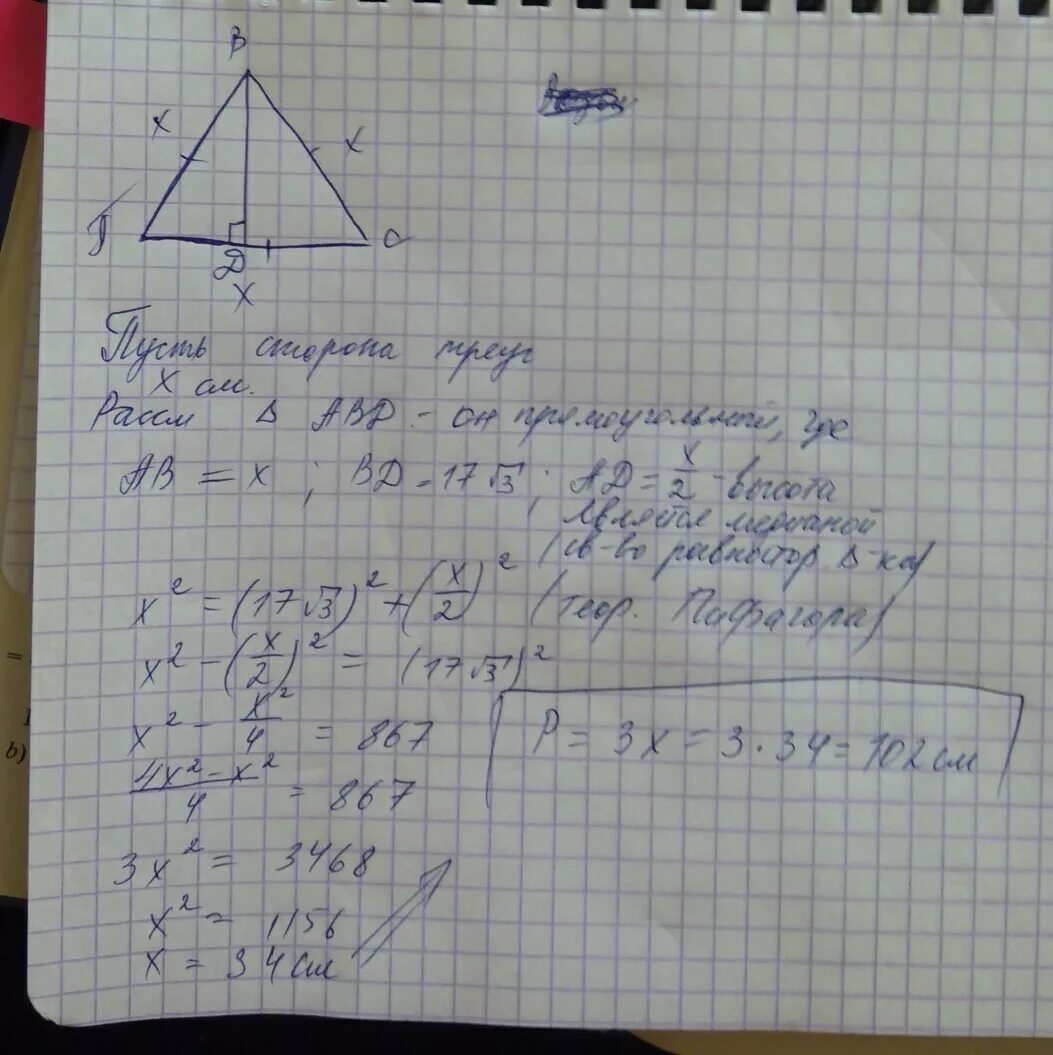 B
x
x
C
D
x
Пусть сторона треуг
x см.
Рассм Δ ABD - он прямоугольный, где
AB = x ; BD = 17√3 ; AD = x/2 - высота
является медианой
(св-во равностор Δ-ка)
x² = (17√3)² + (x/2)² (теор. Пифагора)
x² - (x/2)² = (17√3)²
x² - x²/4 = 867
(4x² - x²)/4 = 867
P = 3x = 3·34 = 102 см
3x² = 3468
x² = 1156
x = 34 см
b)